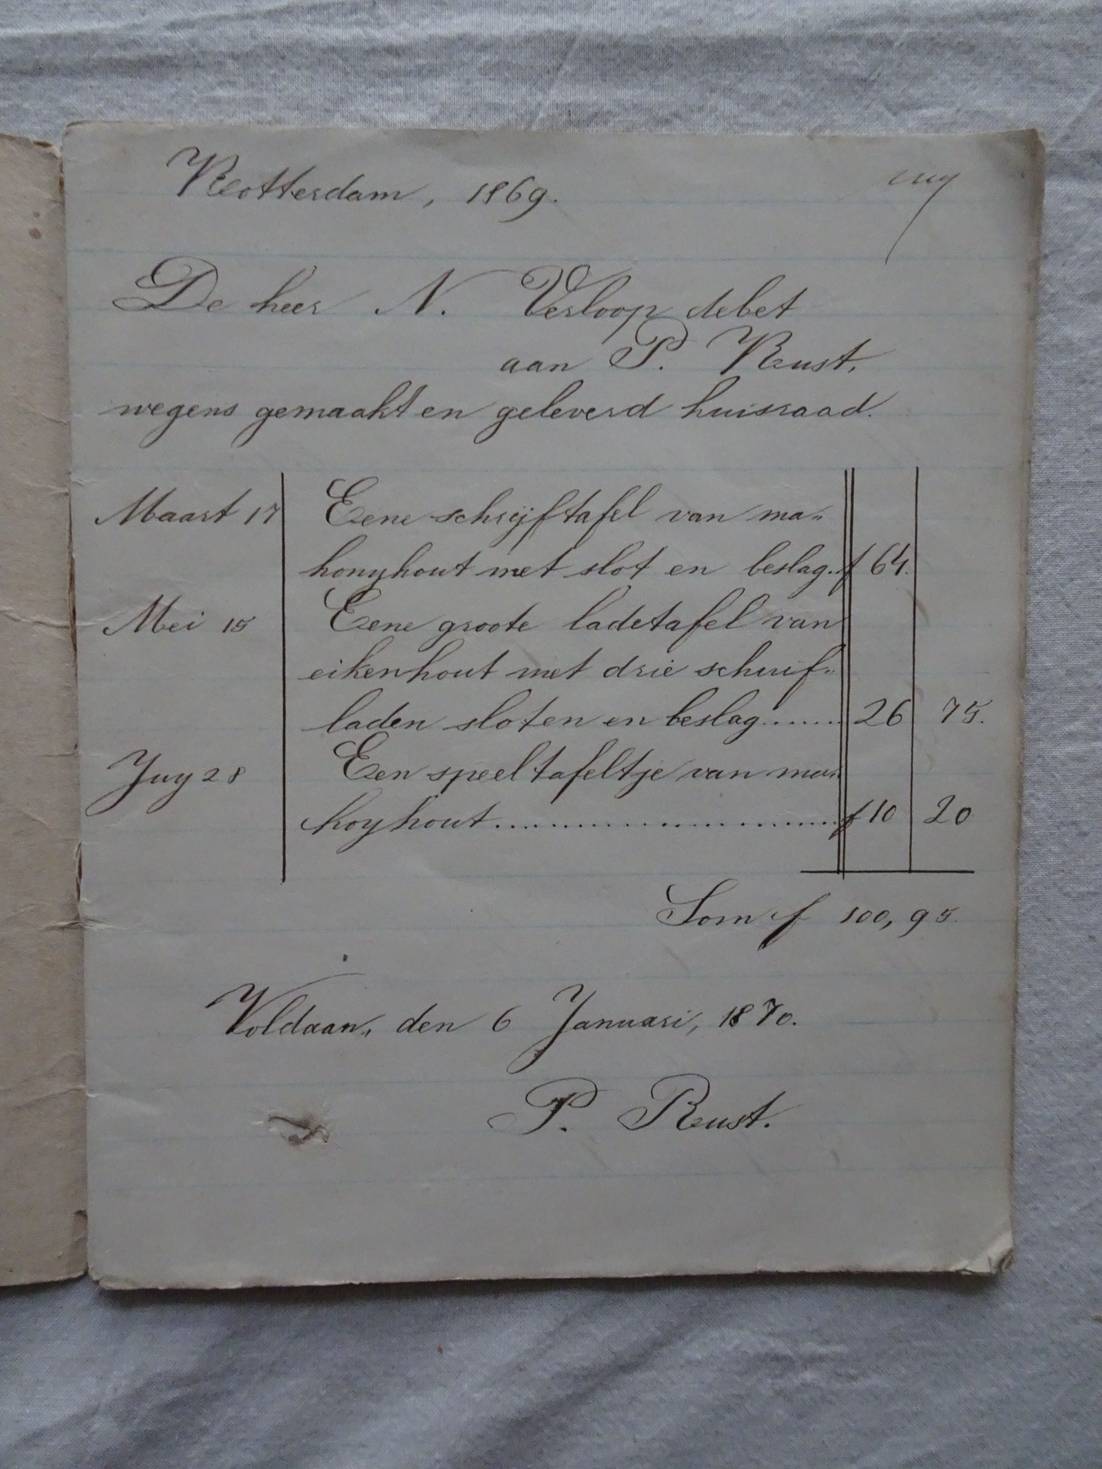 Rotterdam, 1869.
De heer N. Verloop debet
aan P. Rust.
wegens gemaakt en geleverd huisraad.
Maart 17 Eene schrijftafel van ma„
honyhout met slot en beslag.. f 64.
Mei 15 Eene groote ladetafel van
eikenhout met drie schuif„
laden sloten en beslag....... 26 75.
Juy 28 Een speeltafeltje van ma„
hoyhout............................. f 10 20
Som f 100,95
Voldaan, den 6 Januari, 1870.
P. Rust.